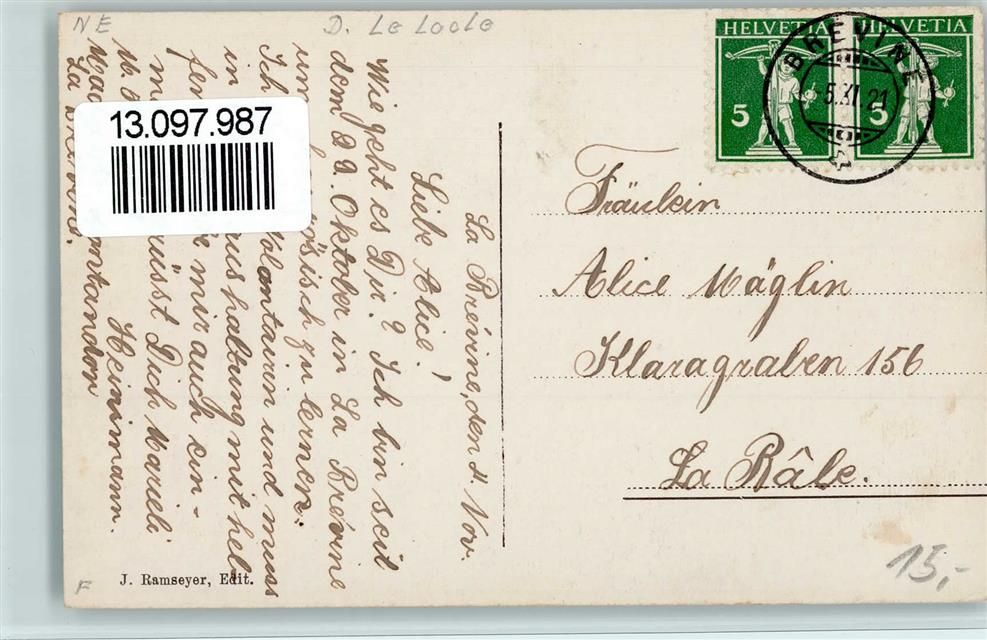 NE
D. Le Locle
HELVETIA
HELVETIA
5
5
BREVINE
5.XI.21
13.097.987
La Brévine, den 4. Nov.
Liebe Alice!
Wie geht es Dir? Ich bin seit
dem 22. Oktober in La Brévine
um
zu lernen.
Ich
Volontairin und muss
in
haltung mit hel
fen.
mir auch ein-
Es grüsst Dich Marieli
Heinimann.
La Brévine.
Fräulein
Alice Mäglin
Klaragraben 156
La Bâle.
J. Ramseyer, Edit.
F
15,-